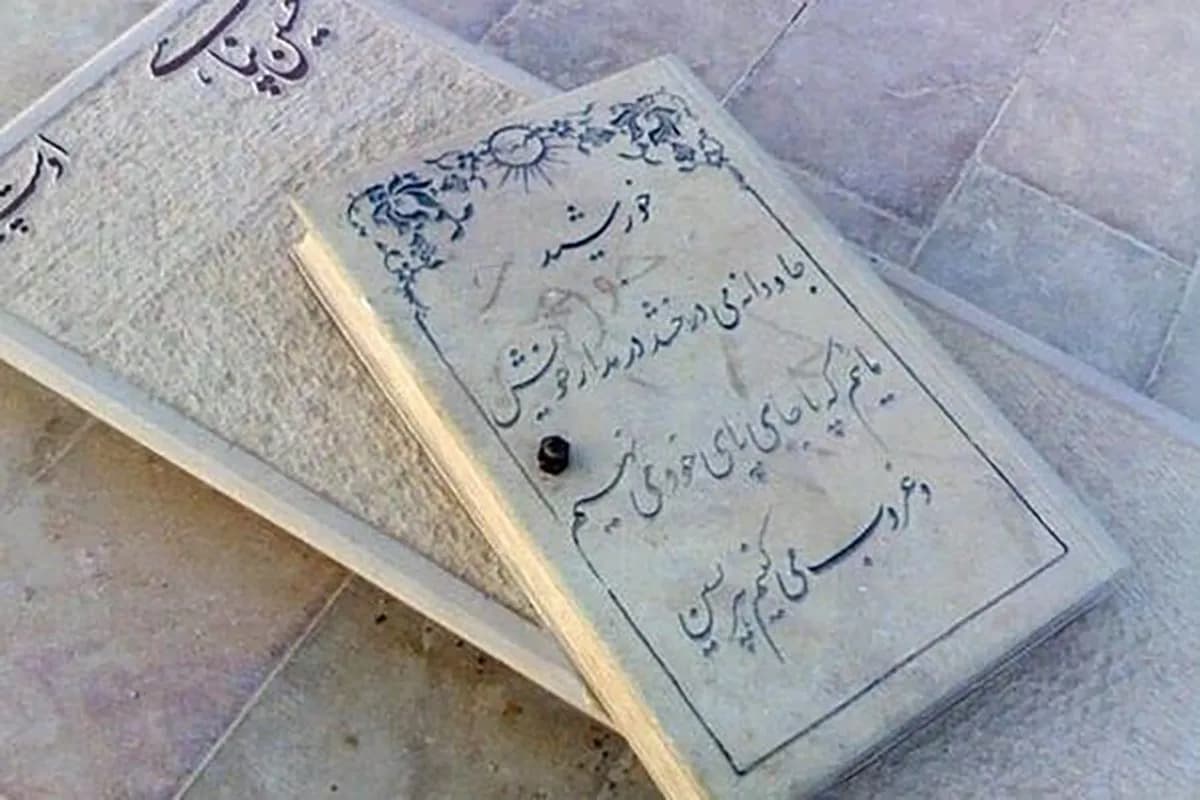 پناهی
خورشید
جاودانه می درخشد در مدار خویش
مائیم که پا جای پای خود می نهیم
و غروب می کنیم هر پسین